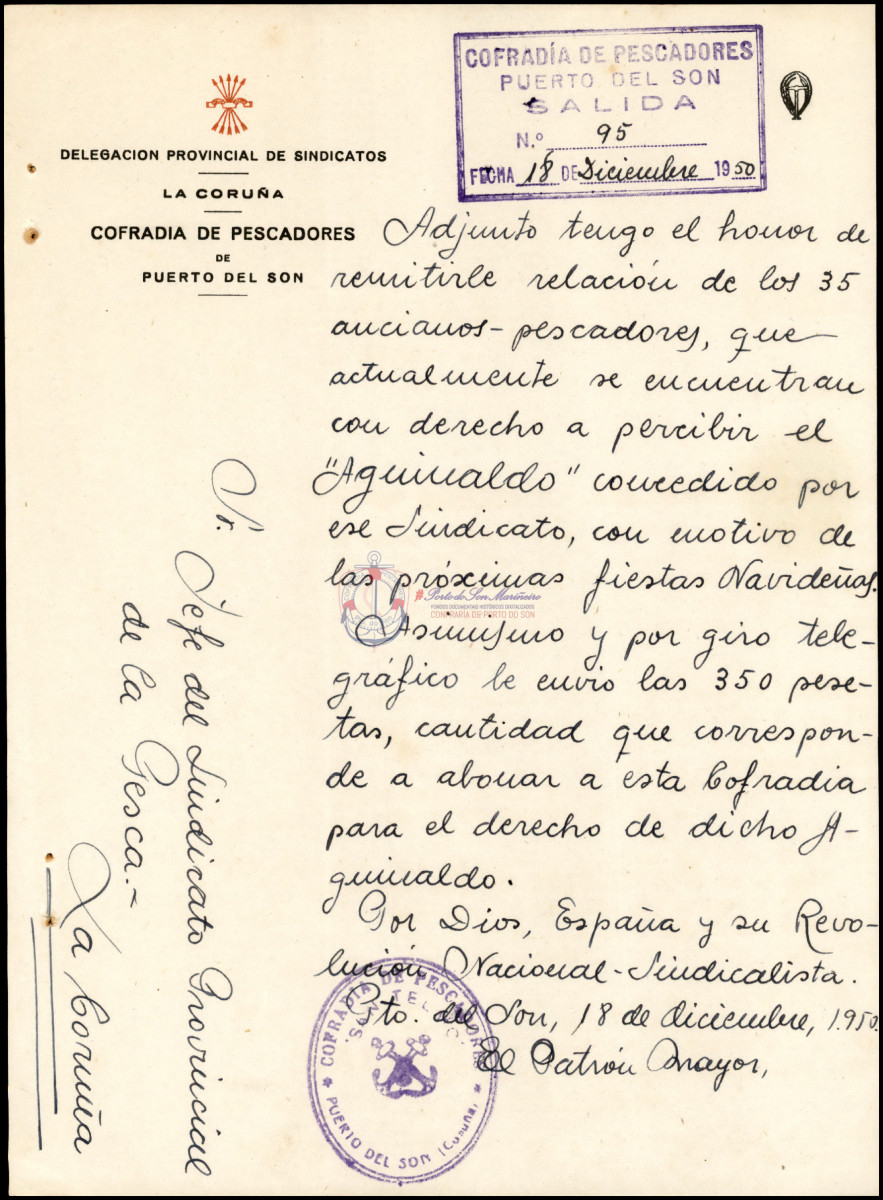 COFRADÍA DE PESCADORES
PUERTO DEL SON
SALIDA
N.º 95
FECHA 18 DE Diciembre 1950
DELEGACION PROVINCIAL DE SINDICATOS
LA CORUÑA
COFRADIA DE PESCADORES
DE
PUERTO DEL SON
Adjunto tengo el honor de
remitirle relación de los 35
ancianos-pescadores, que
actualmente se encuentran
con derecho a percibir el
"Aguinaldo" concedido por
ese Sindicato, con motivo de
las próximas fiestas Navideñas.
#Porto do Son Mariñeiro
FONDOS DOCUMENTAIS HISTÓRICOS DIGITALIZADOS
CONFRARÍA DE PORTO DO SON
Asimismo y por giro tele-
gráfico le envio las 350 pese-
tas, cantidad que correspon-
de a abonar a esta Cofradia
para el derecho de dicho A-
guinaldo.
Por Dios, España y su Revo-
lución Nacional-Sindicalista.
Pto. del Son, 18 de diciembre, 1.950.
El Patrón Mayor,
COFRADIA DE PESCADORES
SAN TELMO
PUERTO DEL SON (Coruña)
Sr. Jefe del Sindicato Provincial
de la Pesca.-
La Coruña